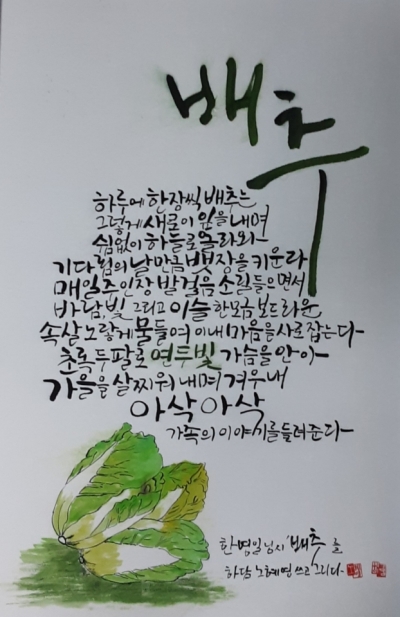 배추
하루에 한장씩 배추는
그렇게 새로이 잎을 내며
쉼없이 하늘로 올라와
기다림의 날만큼 뱃장을 키운다
매일 주인장 발걸음 소릴 들으면서
바람, 빛 그리고 이슬 한모금 보드라운
속살 노랗게 물들여 이내 마음을 사로잡는다
초록 두팔로 연두빛 가슴을 안아
가을을 살찌워 내며 겨우내
아삭아삭
가족의 이야기를 들려준다
한명일님 시 '배추' 를
하담 노혜영 쓰고 그리다